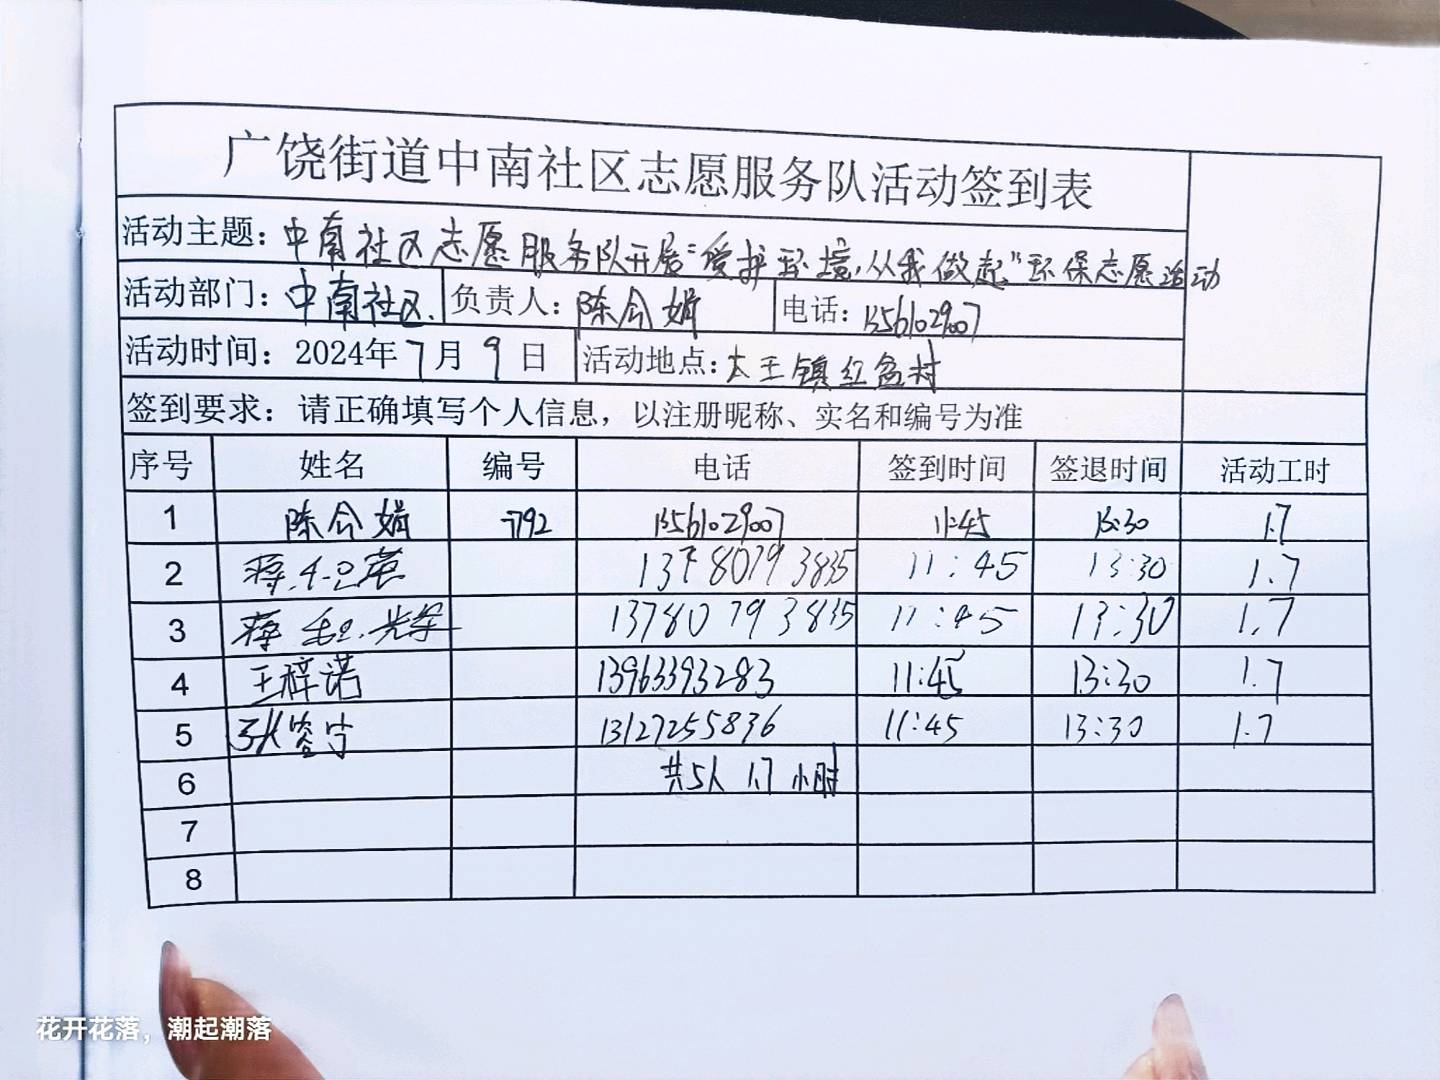 广饶街道中南社区志愿服务队活动签到表
活动主题：中南社区志愿服务队开展“爱护环境，从我做起”环保志愿活动
活动部门：中南社区 负责人：陈令娟 电话：13561029007
活动时间：2024年7月9日 活动地点：大王镇红盆村
签到要求：请正确填写个人信息，以注册昵称、实名和编号为准
序号 姓名 编号 电话 签到时间 签退时间 活动工时
1 陈令娟 792 13561029007 11:45 13:30 1.7
2 蒋 13780793835 11:45 13:30 1.7
3 蒋 13780793835 11:45 13:30 1.7
4 王梓诺 13963393283 11:45 13:30 1.7
5 张 13127255836 11:45 13:30 1.7
6 共5人 1.7小时
7
8
花开花落，潮起潮落